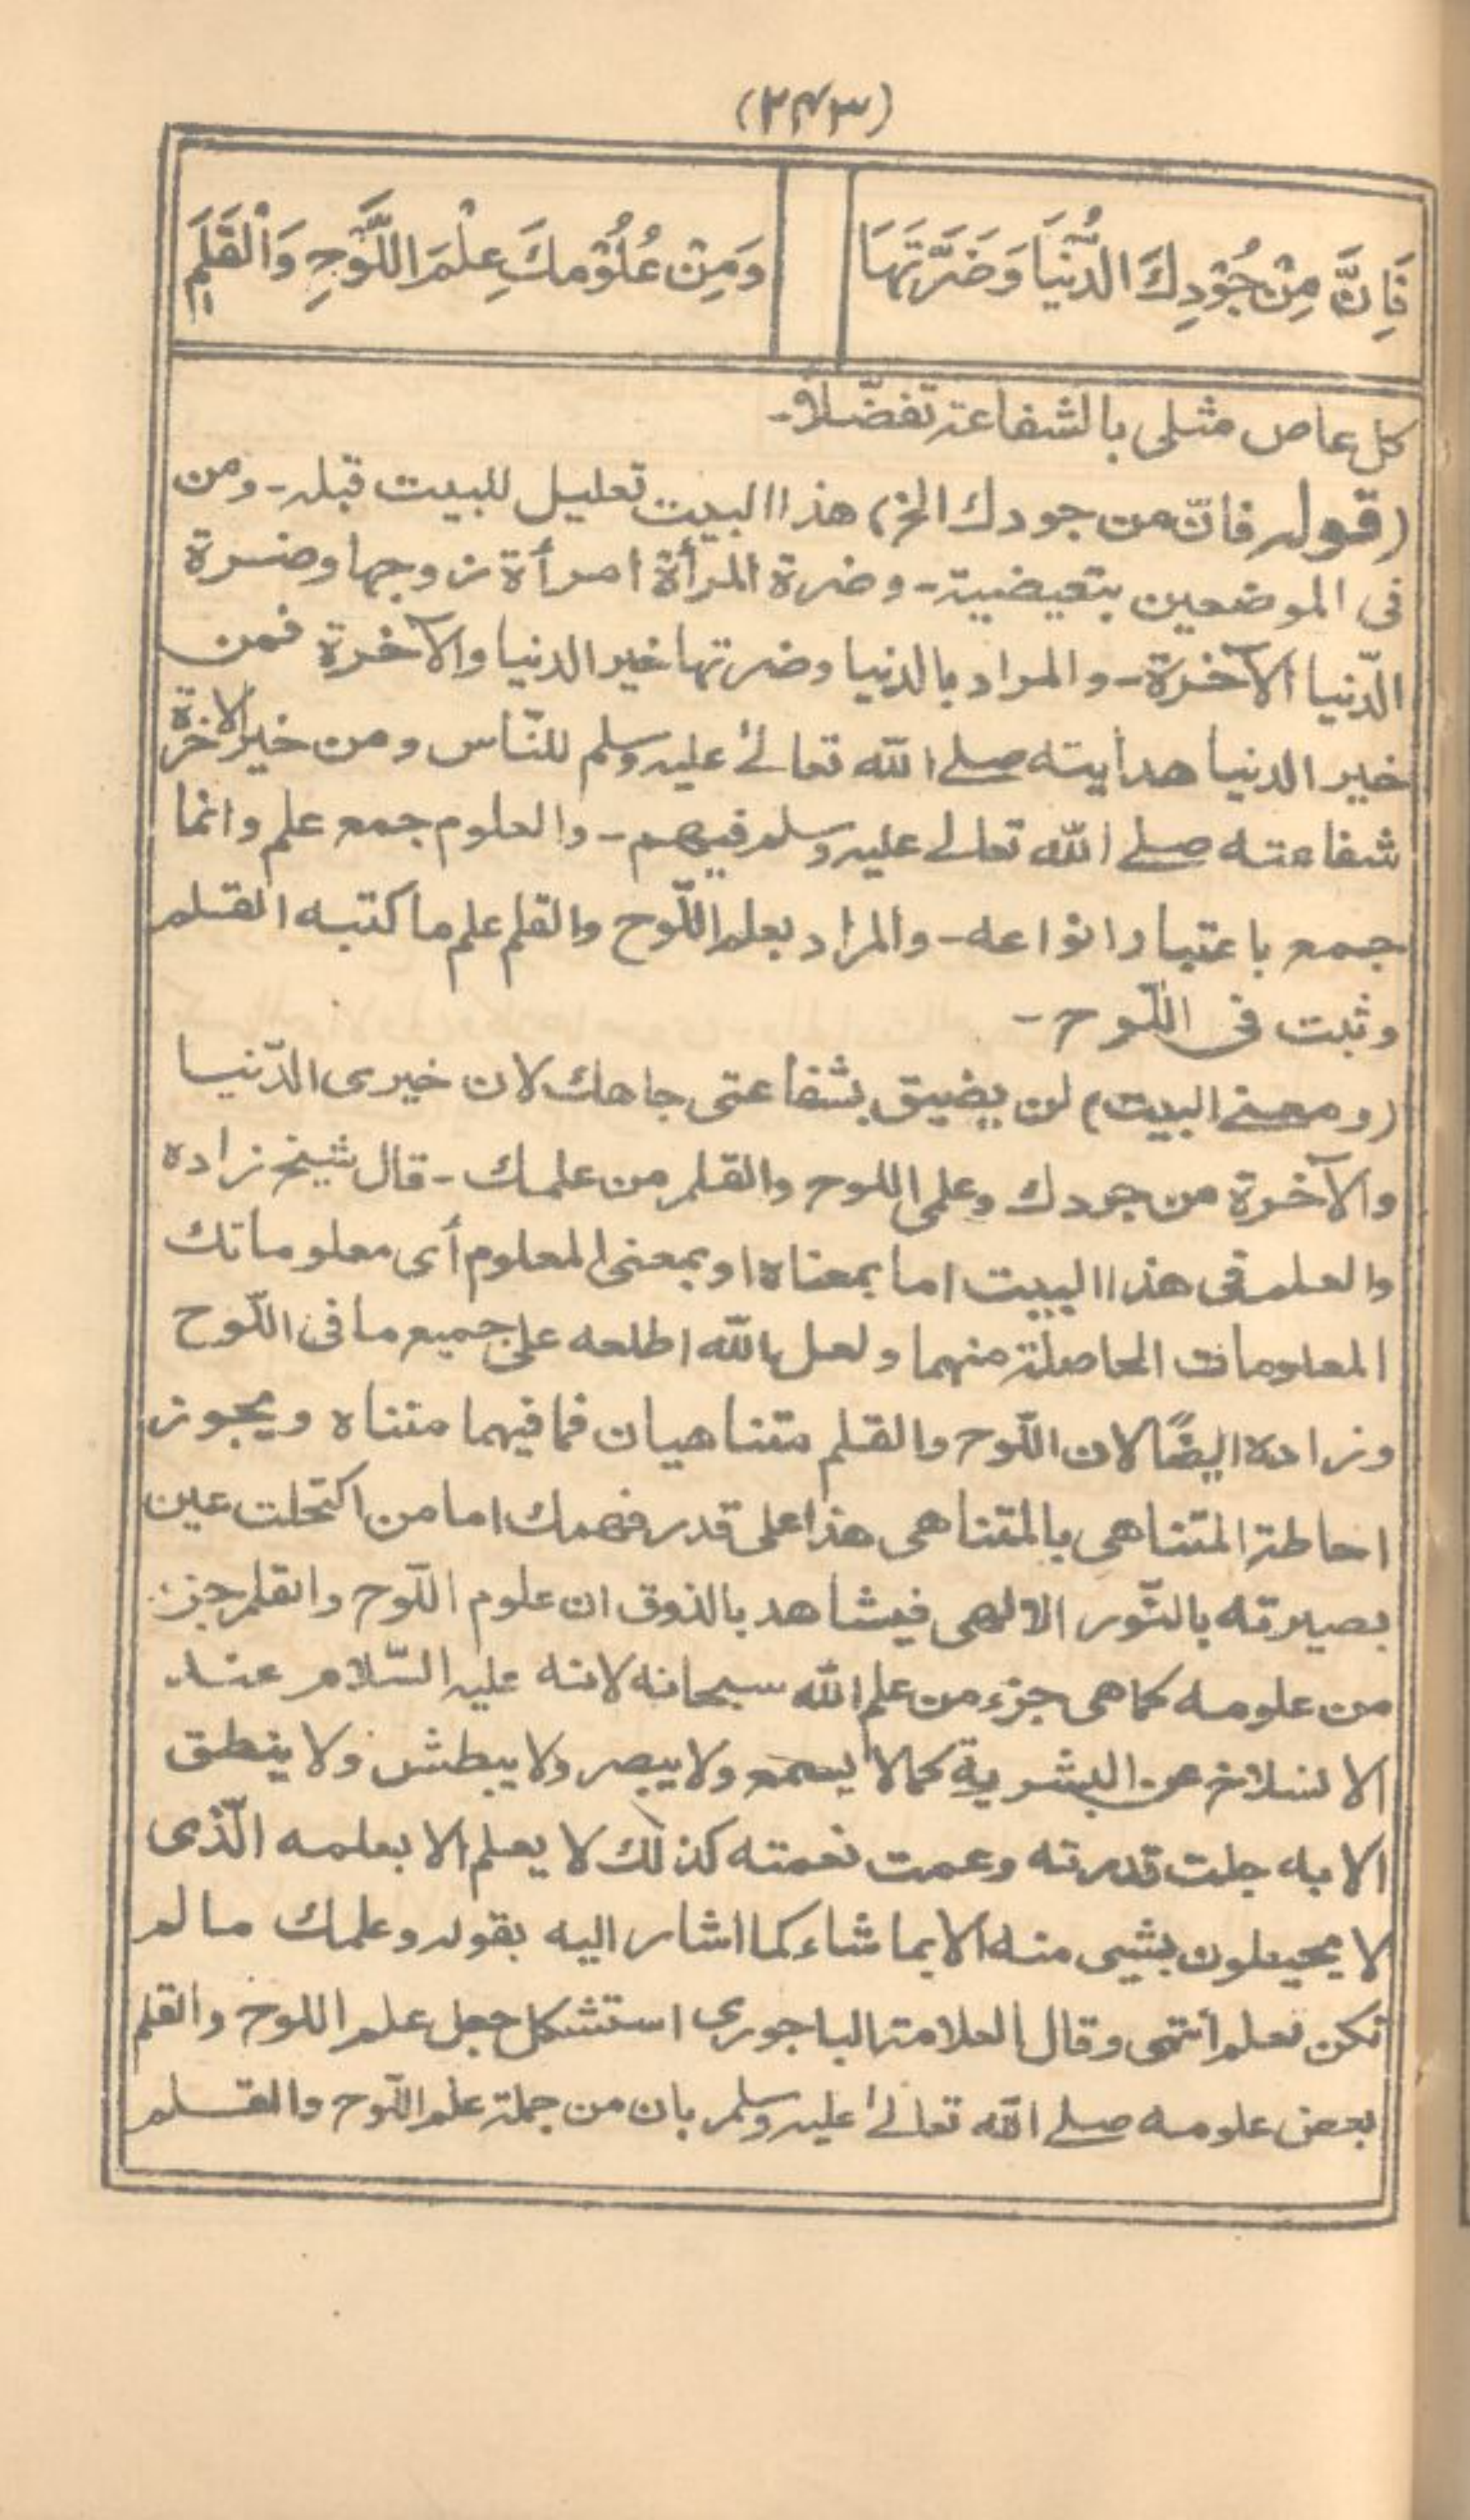 (۲۴۳)
فَاِنَّ مِنْ جُوْدِكَ الدُّنْيَا وَضَرَّتَهَا
وَمِنْ عُلُوْمِكَ عِلْمَ اللَّوْحِ وَالْقَلَمِ
كل عاص مثلى بالشفاعة تفضّلاً۔
(قوله فانّ من جودك الخ) هذا البيت تعليل للبيت قبله۔ ومن
فى الموضعين بتعيضية۔ وضرة المرأة امرأة زوجها وضرة
الدّنيا الآخرة۔ والمراد بالدنيا وضرتها خير الدنيا والآخرة فمن
خير الدنيا هدايته صلے الله تعالےٰ عليه وسلم للنّاس ومن خير الاخرة
شفاعته صلے الله تعالے عليه وسلم فيهم۔ والعلوم جمع علم وانما
جمع باعتبار انواعه۔ والمراد بعلم اللّوح والقلم علم ما كتبه القلم
وثبت فى اللّوح۔
(ومعنے البيت) لن يضيق بشفاعتى جاهك لان خيرى الدّنيا
والآخرة من جودك وعلمى اللوح والقلم من علمك۔ قال شيخ زاده
والعلم فى هذا البيت اما بمعناه او بمعنى المعلوم أى معلوماتك
المعلومات الحاصلة منهما ولعل الله اطلعه على جميع ما فى اللّوح
وزاده ايضًا لان اللّوح والقلم متناهيان فما فيهما متناه ويجوز
احاطة المتناهى بالمتناهى هذا على قدر فهمك اما من اكتحلت عين
بصيرته بالنّور الالهى فيشاهد بالذوق ان علوم اللّوح والقلم جزء
من علومه كما هى جزء من علم الله سبحانه لانه عليه السّلام عند
الانسلاخ عن البشرية كما لا يسمع ولا يبصر ولا يبطش ولا ينطق
الا به جلت قدرته وعمت نعمته كذلك لا يعلم الا بعلمه الّذى
لا يحيطون بشيى منه الا بما شاء كما اشار اليه بقوله وعلمك ما لم
تكن تعلم أنتهى وقال العلامة الباجورى استشكل جعل علم اللوح والقلم
بعض علومه صلے الله تعالےٰ عليه وسلم بان من جملة علم اللّوح والقلم